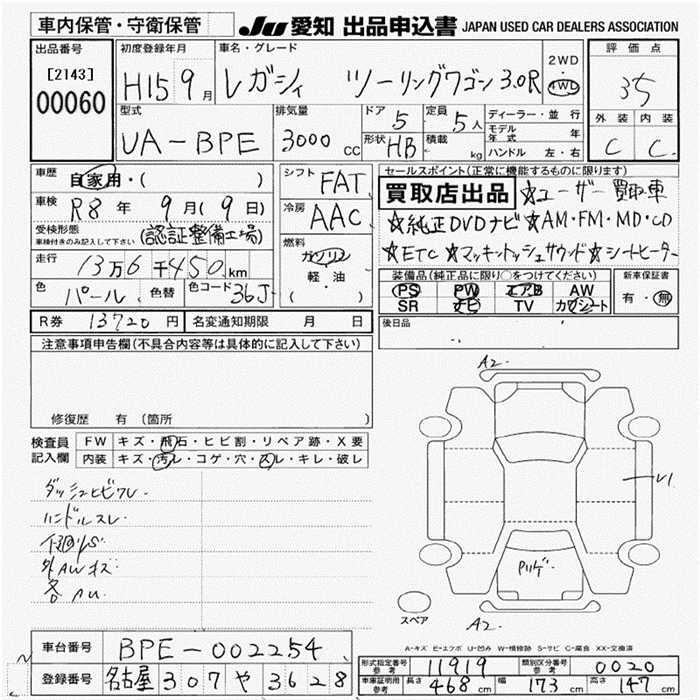 車内保管・守衛保管
JU 愛知 出品申込書 JAPAN USED CAR DEALERS ASSOCIATION
出品番号
[2143]
00060
初度登録年月
H15 9月
車名・グレード
レガシィ ツーリングワゴン 3.0R
2WD
・
4WD
評価点
3.5
外装 内装
C C
型式
UA-BPE
排気量
3000 cc
ドア 5
形状 HB
定員 5人
積載 kg
ディーラー・並行
モデル年式 年
ハンドル 左・右
車歴
自家用・( )
車検 R8年 9月(9日)
受検形態
車検付きのみ記入して下さい
(認証整備工場)
走行 13万6千450km
色 パール 色替 色コード 36J
シフト FAT
冷房 AAC
燃料
ガソリン
軽・油
( )
セールスポイント(正常に機能するものに限ります)
買取店出品 ☆ユーザー買取車
☆純正DVDナビ☆AM・FM・MD・CD
☆ETC☆マッキントッシュサウンド☆シートヒーター
装備品(純正品に限り○をつけてください)
PS PW エアB AW
SR ナビ TV カワシート
新車保証書
有・無
R券 13720円 名変通知期限 月 日
後日品
注意事項申告欄(不具合内容等は具体的に記入して下さい)
修復歴 有(箇所
検査員
記入欄
FW キズ・飛石・ヒビ割・リペア跡・X要
内装 キズ・汚レ・コゲ・穴・スレ・キレ・破レ
ダッシュヒビワレ.
ハンドルスレ.
下廻りS
外AWキズ
各AU.
A2.
U1
Pリゲ.
A2.
スペア
A-キズ E-エクボ U-凹み W-補修跡 S-サビ C-腐食 XX-交換済
車台番号 BPE-002254
登録番号 名古屋 307 や 3628
型式指定番号 参考 11919 類別区分番号 参考 0020
車庫証明用 参考 長さ 468 cm 幅 173 cm 高さ 147 cm